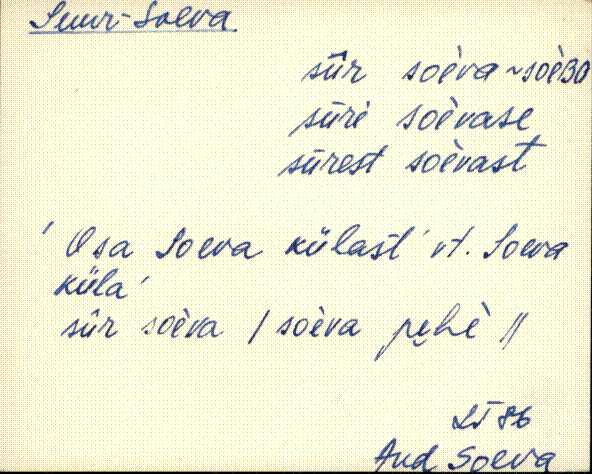 Suur-Soeva
sûr soèva ~ soèva
sūrè soèvase
sūrest soèvast
'Osa Soeva külast' vt. Soeva
küla'
sûr soèva / soèva pehè //
LT 86
And Soeva